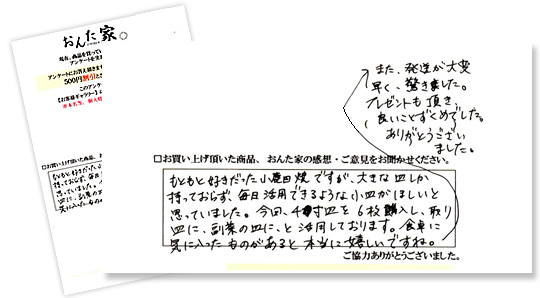 おんた家。
500円割引
□お買い上げ頂いた商品、
もともと好きだった
持っておらず、毎日
思っていました。
皿に、副菜の
気に入ったもの
また、発送が大変
早く、驚きました。
プレゼントも頂き、
良いことずくめでした。
ありがとうござい
ました。
□お買い上げ頂いた商品、おんた家の感想・ご意見をお聞かせください。
もともと好きだった小鹿田焼ですが、大きな皿しか
持っておらず、毎日活用できるような小皿がほしいと
思っていました。今回、4寸皿を6枚購入し、取り
皿に、副菜の皿に、と活用しております。食卓に
気に入ったものがあると本当に嬉しいですね。
ご協力ありがとうございました。